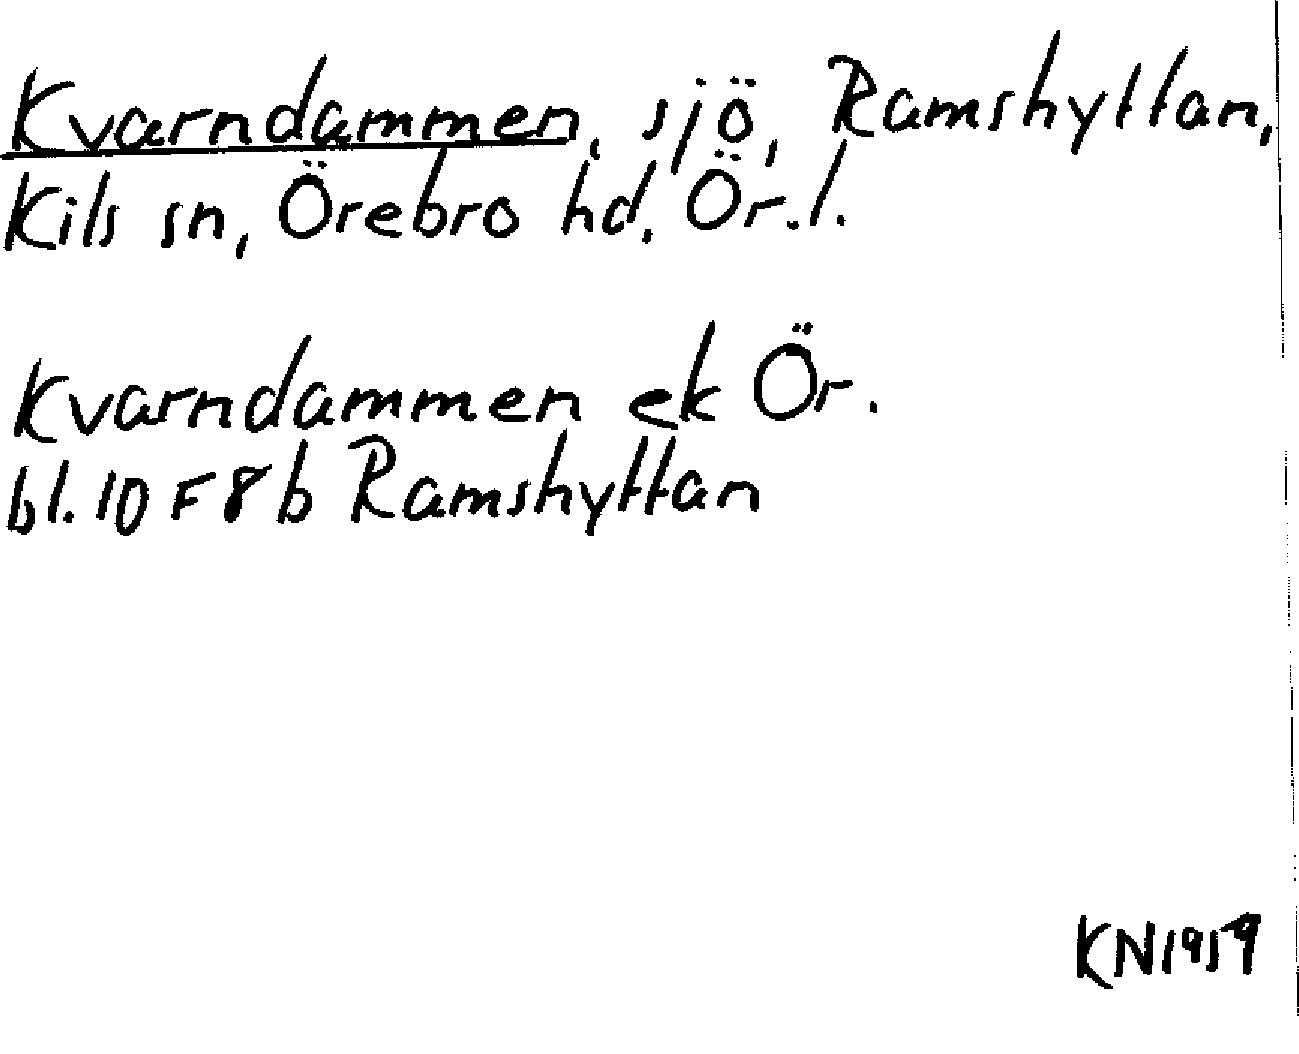 Kvarndammen, sjö, Ramshyttan,
Kils sn, Örebro hd. Ör.l.
Kvarndammen ek Ör.
bl. 10 F 8 b Ramshyttan
KN 1959